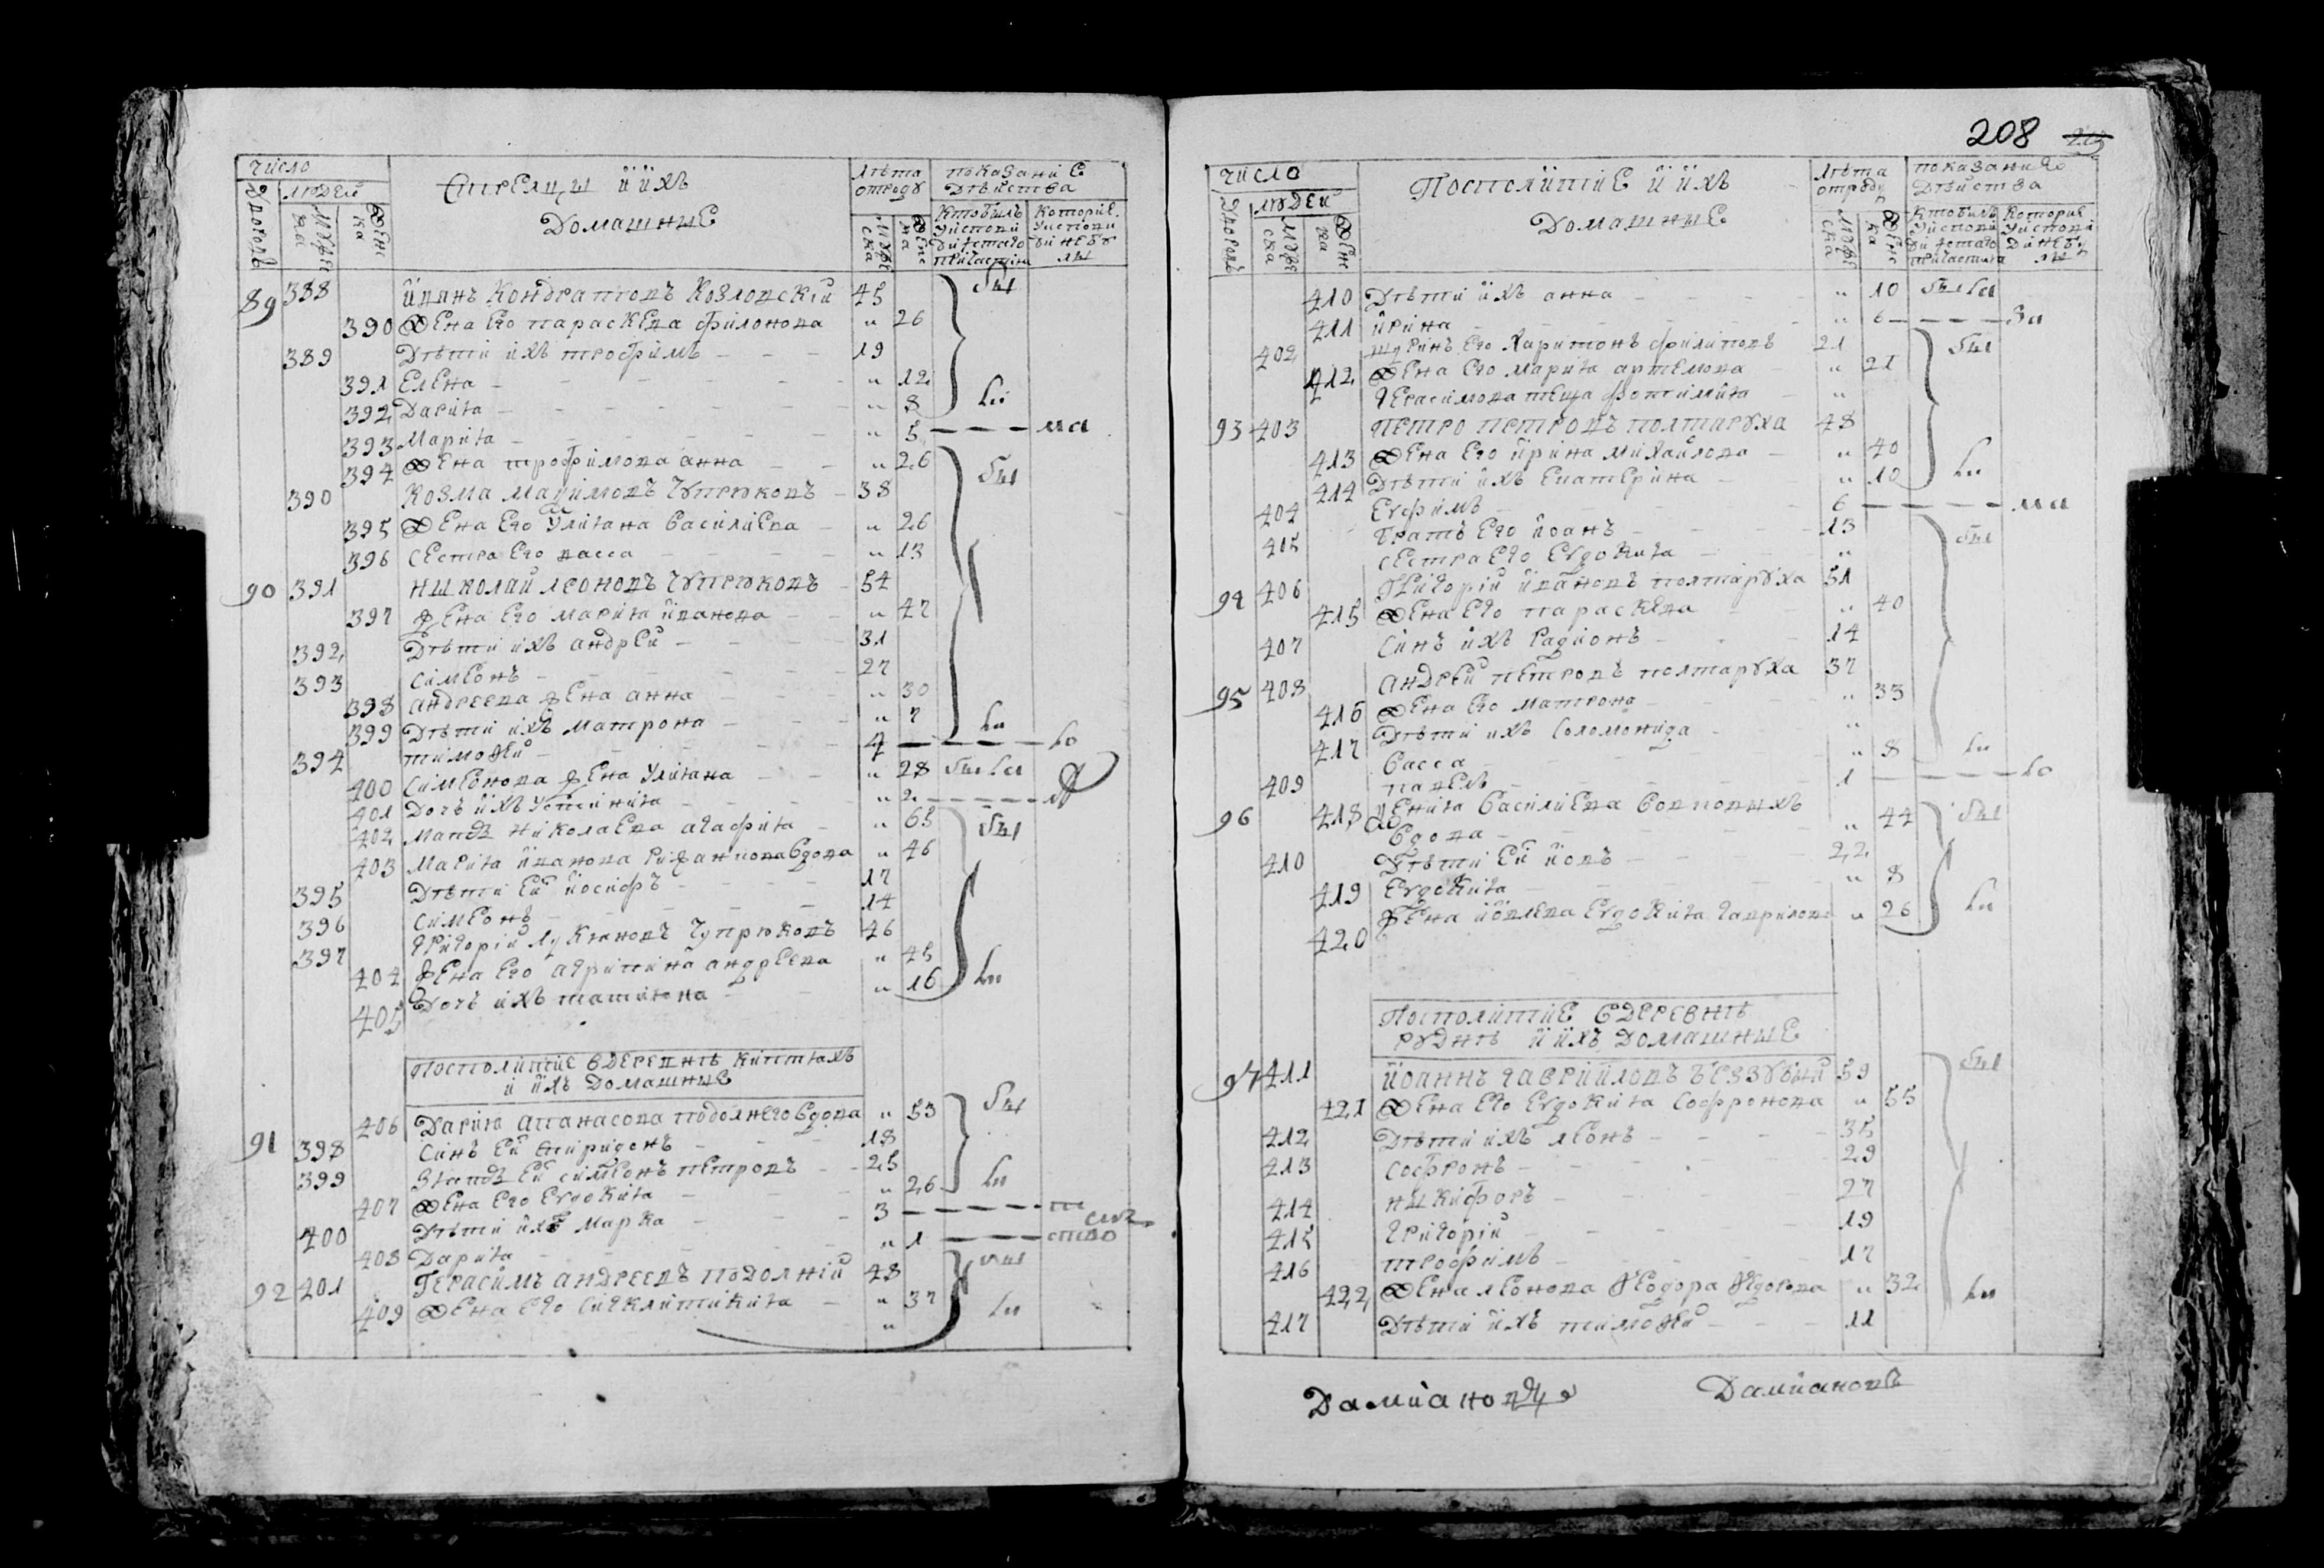 число
Дворовъ
людей
Мужеска
Женска
Стрелцы и ихъ
Домашние
Лѣта отроду
Мужеска
Женска
показание Дѣйства
Кто былъ у исповѣди и святаго причастия
Которие у исповеди не були
89 388 Иванъ Кондратовъ Козловский 45 бы
390 Жена его параскева филонова " 26
389 Дѣти ихъ трофимъ 19
391 Елена " 12
392 Дария " 8 ли
393 Мария " 5 ма
394 Жена трофимова анна " 26 бы
390 Козма Мазимовъ Чупрюковъ 38
395 Жена его Улияна Василиева " 26
396 сестра его васса " 13
90 391 николай леоновъ Чупрюковъ 54
397 жена его мария иванова " 47
392 Дѣти ихъ андрей 31
393 симеонъ 27
398 андреева жена анна " 30
399 Дѣти ихъ матрона " 7 ли
394 тимофей 4 ло
400 симеонова жена Улияна " 28 была
401 Дочъ ихъ устиния " 2
402 мать николаева агафия " 65 бы
403 Мария иванова вдова " 46
395 Дѣти ей иосифъ 17
396 симеонъ 14
397 григорий лукяновъ Чупрюковъ 46
404 жена его агрипина андреева " 45
405 Дочъ ихъ татияна " 16 ли
Посполитие в деревнѣ
и ихъ Домашние
91 406 Дария апанасова подолнего вдова " 53 бы
398 синъ ей спиридонъ 18
399 зять ей симеонъ петровъ 25
407 Жена его Евдокия " 26 ли
400 Дѣти ихъ марка 3
408 Дария " 1 ство
92 401 Герасимъ андреевъ подолний 48 бы
409 Жена его сигклитикия " 37 ли
208
число
Дворовъ
людей
Мужеска
Женска
Посполитие и ихъ
Домашние
Лѣта отроду
Мужеска
Женска
показание Дѣйства
Кто былъ у исповѣди и святаго причастия
Которие у исповеди не були
410 Дѣти ихъ анна " 10 была
411 ирина " 6 за
402 шуринъ его Харитонъ филиповъ 21 бы
412 Жена его мария артемова " 21
Герасимова теща фотиния "
93 403 петро петровъ полтаруха 48
413 Жена его ирина михайлова " 40
414 Дѣти ихъ екатерина " 10 ли
404 Ефимъ 6 ма
405 братъ его иоанъ 13 бы
сестра его Евдокия "
94 406 Григорий ивановъ полтаруха 51
415 Жена его параскева " 40
407 синъ ихъ радионъ 14
95 408 андрей петровъ полтаруха 37
416 Жена его матрона " 33
Дѣти ихъ соломонида "
417 васса " 8 ли
409 павелъ 1 ло
96 418 Василиева
вдова " 44 бы
410 Дѣти ей иовъ 22
419 Евдокия " 8
420 жена иовлева Евдокия гаврилова " 26 ли
Посполитие в деревнѣ
руднѣ и ихъ домашние
97 411 Иоаннъ гаврииловъ беззубий 59 бы
421 Жена его Евдокия софронова " 55
412 Дѣти ихъ леонъ 35
413 софронъ 29
414 никифоръ 27
415 григорий 19
416 трофимъ 17
422 Жена леонова феодора федорова " 32 ли
417 Дѣти ихъ тимофей 11
Дамиановъ